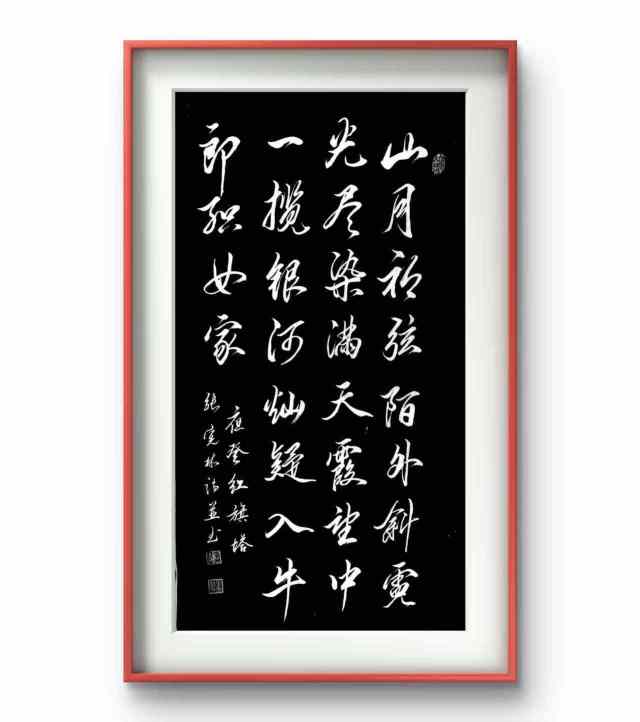 山月初弦陌外斜霓
光尽染满天霞望中
一揽银河灿疑入牛
郎织女家
夜登红旗塔
张宽林诗并书